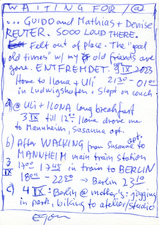 WAITING FOR /@
... GUIDO and Mathias + Denise
REUTER. SOOO LOUD THERE.
Felt out of place. The "good
old times" w/ my old friends are
gone. ENTFREMDET. 3 IX 2023
Home to Ilona + Uli 01
in Ludwigshafen / slept on couch
a) @ Uli + Ilona long breakfast
3 IX till 12 Ilona drove me
to Mannheim, Susanna apt.
b) After WALKING from Susanna apt
to MANNHEIM main train station
3 IX 17 17 in train to BERLIN
18 – 22 – Berlin 23
c) 4 IX: Berlin @ jogging
in park, biking to atelier/studio